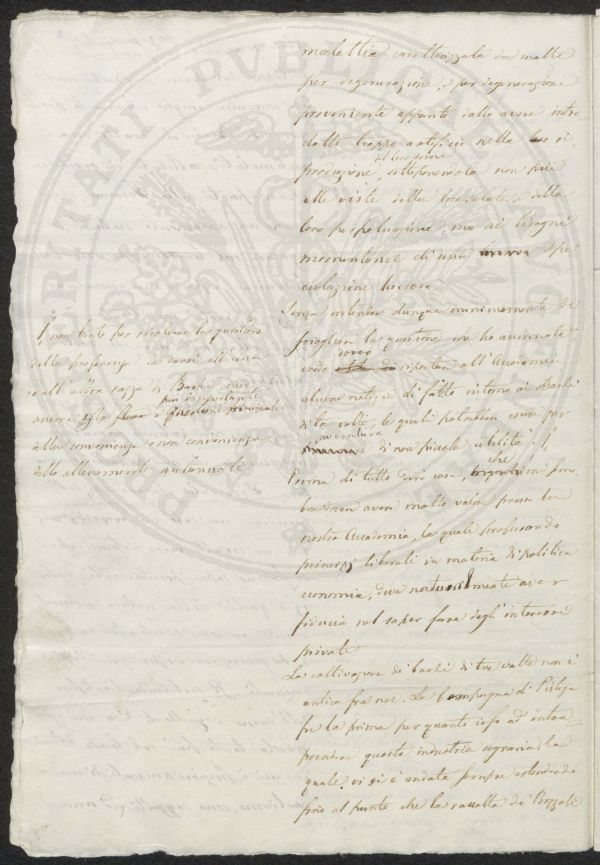 malattia caratterizzata da molti
per degenerazione, e per degenerazione
proveniente appunto dallo avere intro
dotto troppo artifizio nella ri
produzione, sottoponendola non più
alle viste della loro salute, e della
loro perpetuazione, ma ai bisogni
momentanei di una spe
culazione
Senza intender dunque minimamente di
sciogliere la quistione che ho accennata
credo dover riportare all'Accademia
alcune notizie di fatto intorno ai Bachi
di tre volte, le quali potrebber essere per
avventura di non piccola utilità.
Prima di tutto dirò cosa, che
deva avere molto valore presso la
nostra Accademia, la quale professando
principj liberali in materia di politica
economia, deve naturalmente aver
fiducia sul saper fare degl'interessi
privati
La coltivazione di bachi di tre volte non è
antica fra noi. La Campagna di
fu la prima per quanto io so ad intra
prendere questa industria agraria, la
quale vi si è andata sempre estendendo
fino al punto che la raccolta di Bozzoli
non tanto per risolvere la questione
della preferenza da darsi all'una
o all'altra razza di Bachi, ma
ancora sulla più importante e principale
della convenienza e non convenienza
dello allevamento autunnale